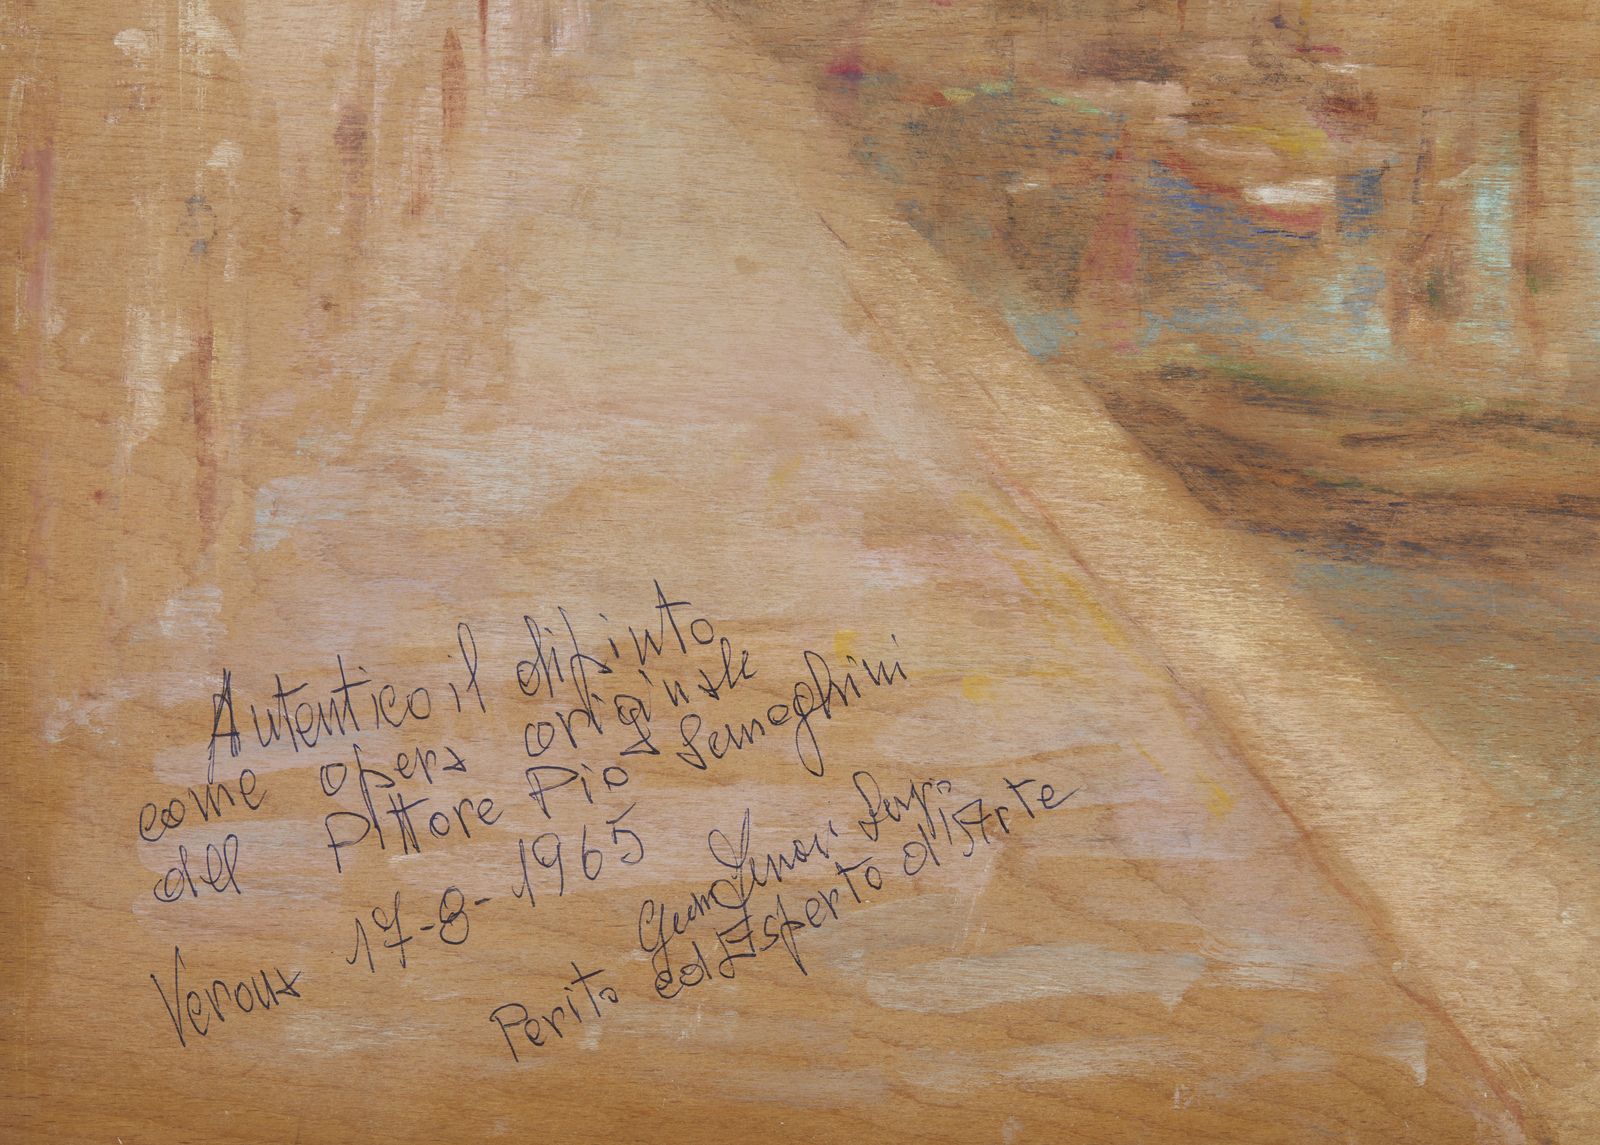 Autentico il dipinto
come opera originale
del Pittore Pio Semeghini
Verona 17-8-1965
Perito ed Esperto d'Arte